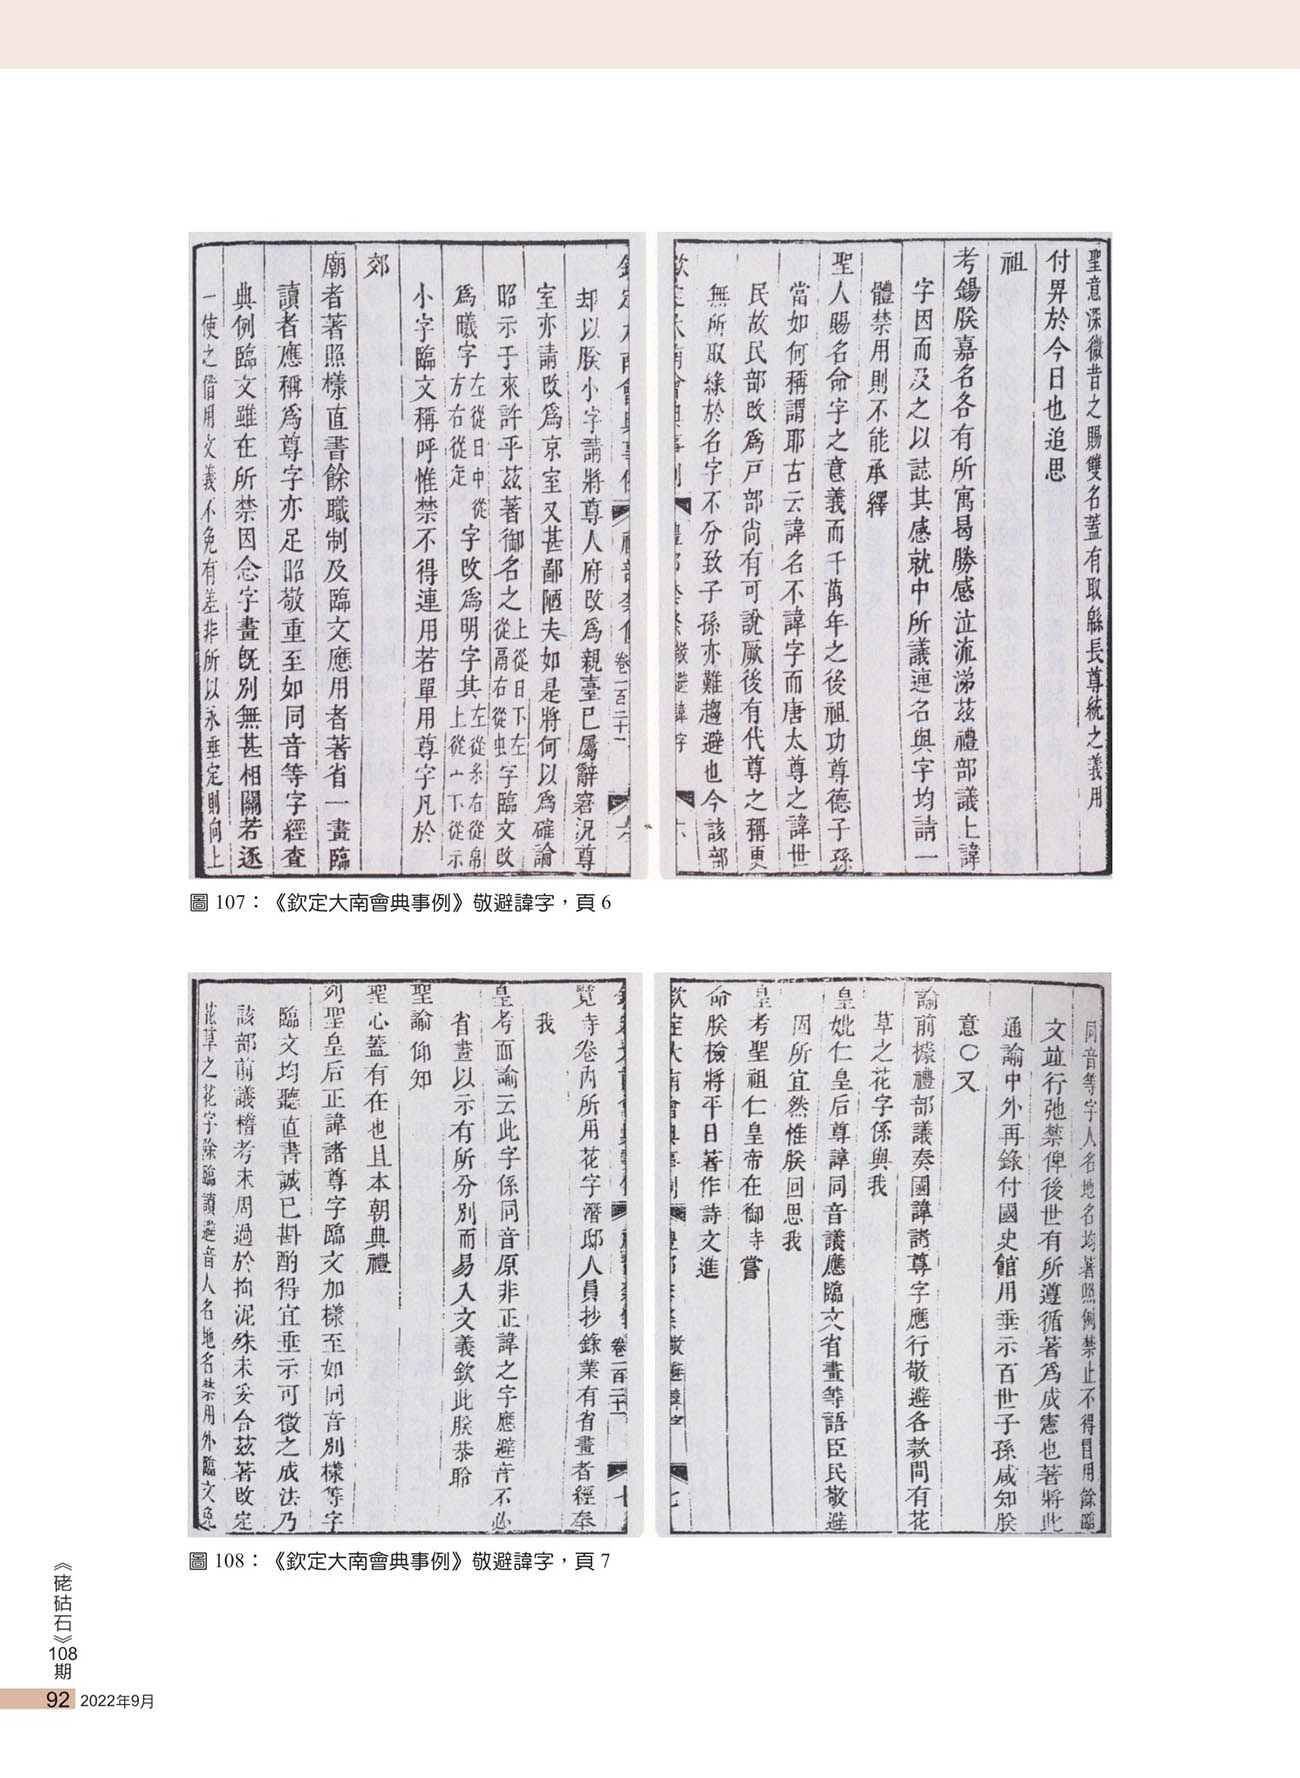 聖意深微昔之賜雙名蓋有取緜長尊統之義用
付畀於今日也追思
祖
考錫朕嘉名各有所寓曷勝感泣流涕茲禮部議上諱
字因而及之以誌其感就中所議連名與字均請一
體禁用則不能承繹
聖人賜名命字之意義而千萬年之後祖功尊德子孫
當如何稱謂耶古云諱名不諱字而唐太尊之諱世
民故民部改爲戸部尙有可說厥後有代尊之稱更
無所取緣於名字不分致子孫亦難趨避也今該部
欽定大南會典事例 禮部禁條 敬避諱字 六
欽定大南會典事例 禮部禁條 卷一百二十一 六
却以朕小字請將尊人府改爲親臺已屬辭窘況尊
室亦請改爲京室又甚鄙陋夫如是將何以爲確論
昭示于來許乎茲著御名之上從日下左從鬲右從虫字臨文改
爲曦字左從日中從方右從㝎字改爲明字其左從糸右從帛上從宀下從示
小字臨文稱呼惟禁不得連用若單用尊字凡於
郊
廟者著照樣直書餘職制及臨文應用者著省一畫臨
讀者應稱爲尊字亦足昭敬重至如同音等字經查
典例臨文雖在所禁因念字畫旣別無甚相關若逐
一使之借用文義不免有差非所以永垂定則向上
圖 107：《欽定大南會典事例》敬避諱字，頁 6
同音等字人名地名均著照例禁止不得冒用餘臨
文並行弛禁俾後世有所遵循著爲成憲也著將此
通諭中外再錄付國史館用垂示百世子孫咸知朕
意○又
諭前據禮部議奏國諱諸尊字應行敬避各款間有花
草之花字係與我
皇妣仁皇后尊諱同音議應臨文省畫等語臣民敬避
固所宜然惟朕回思我
皇考聖祖仁皇帝在御時嘗
命朕檢將平日著作詩文進
欽定大南會典事例 禮部禁條 敬避諱字 七
欽定大南會典事例 禮部禁條 卷一百二十一 七
覽時卷內所用花字潛邸人員抄錄業有省畫者經奉
我
皇考面諭云此字係同音原非正諱之字應避音不必
省畫以示有所分別而易入文義欽此朕恭聆
聖諭仰知
聖心蓋有在也且本朝典禮
列聖皇后正諱諸尊字臨文加樣至如同音別樣等字
臨文均聽直書誠已斟酌得宜垂示可徵之成法乃
該部前議稽考未周過於拘泥殊未妥合茲著改定
花草之花字除臨讀避音人名地名禁用外臨文免
圖 108：《欽定大南會典事例》敬避諱字，頁 7
《硓𥑮石》108期
92 2022年9月